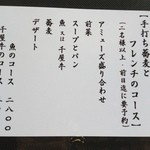 【手打ち蕎麦と
フレンチのコース】
(二名様以上・前日迄に要予約)
アミューズ盛り合わせ
前菜
スープとパン
魚又は千屋牛
蕎麦
デザート
魚のコース 二八〇〇
千屋牛のコース